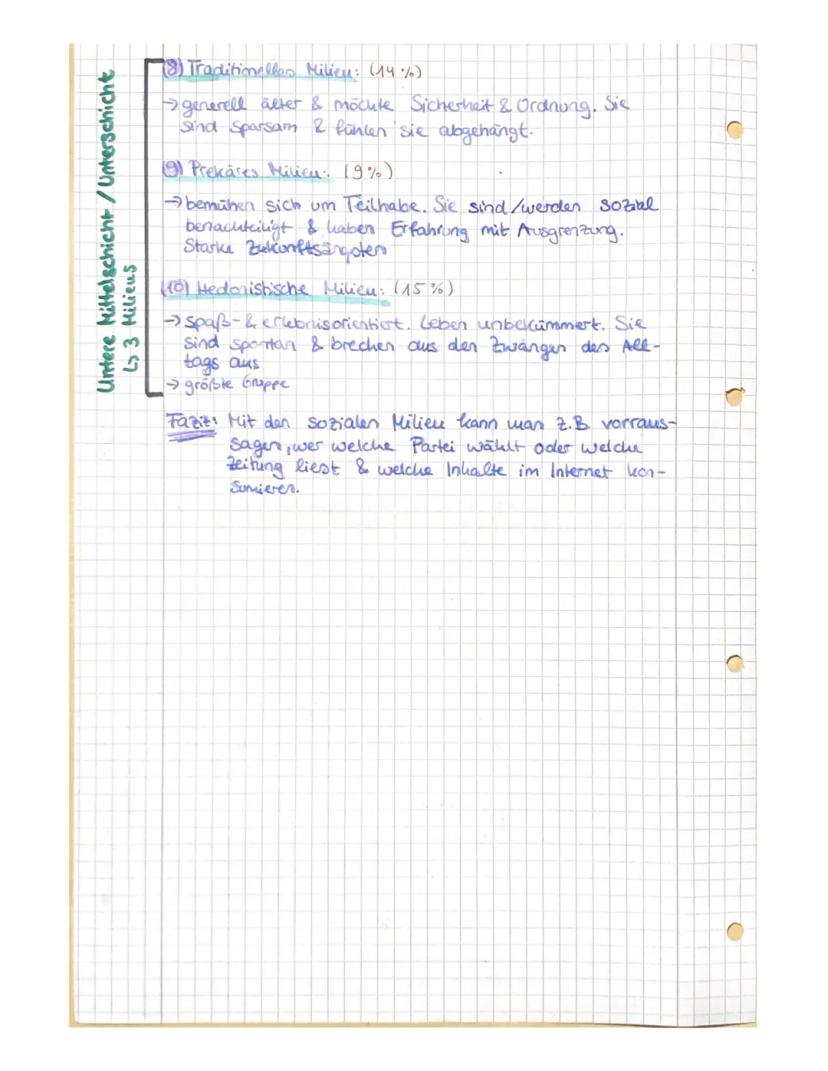 Untere Mittelschicht / Unterschicht
↳ 3 Milieus
(8) Traditionelles Milieu: (14 %)
→ generell älter & möchte Sicherheit & Ordnung. Sie
sind sparsam & fühlen sie abgehängt.
(9) Prekäres Milieu: (9%)
→ bemühen sich um Teilhabe. Sie sind/werden sozial
benachteiligt & haben Erfahrung mit Ausgrenzung.
Starke Zukunftsängsten
(10) Hedonistische Milieu: (15 %)
→ spaß- & erlebnisorientiert. Leben unbekümmert. Sie
sind spontan & brechen aus den Zwängen des All-
tags aus
→ größte Gruppe
Fazit: Mit den sozialen Milieu kann man z.B vorraus-
sagen, wer welche Partei wählt oder welche
Zeitung liest & welche Inhalte im Internet kon-
sumieren.